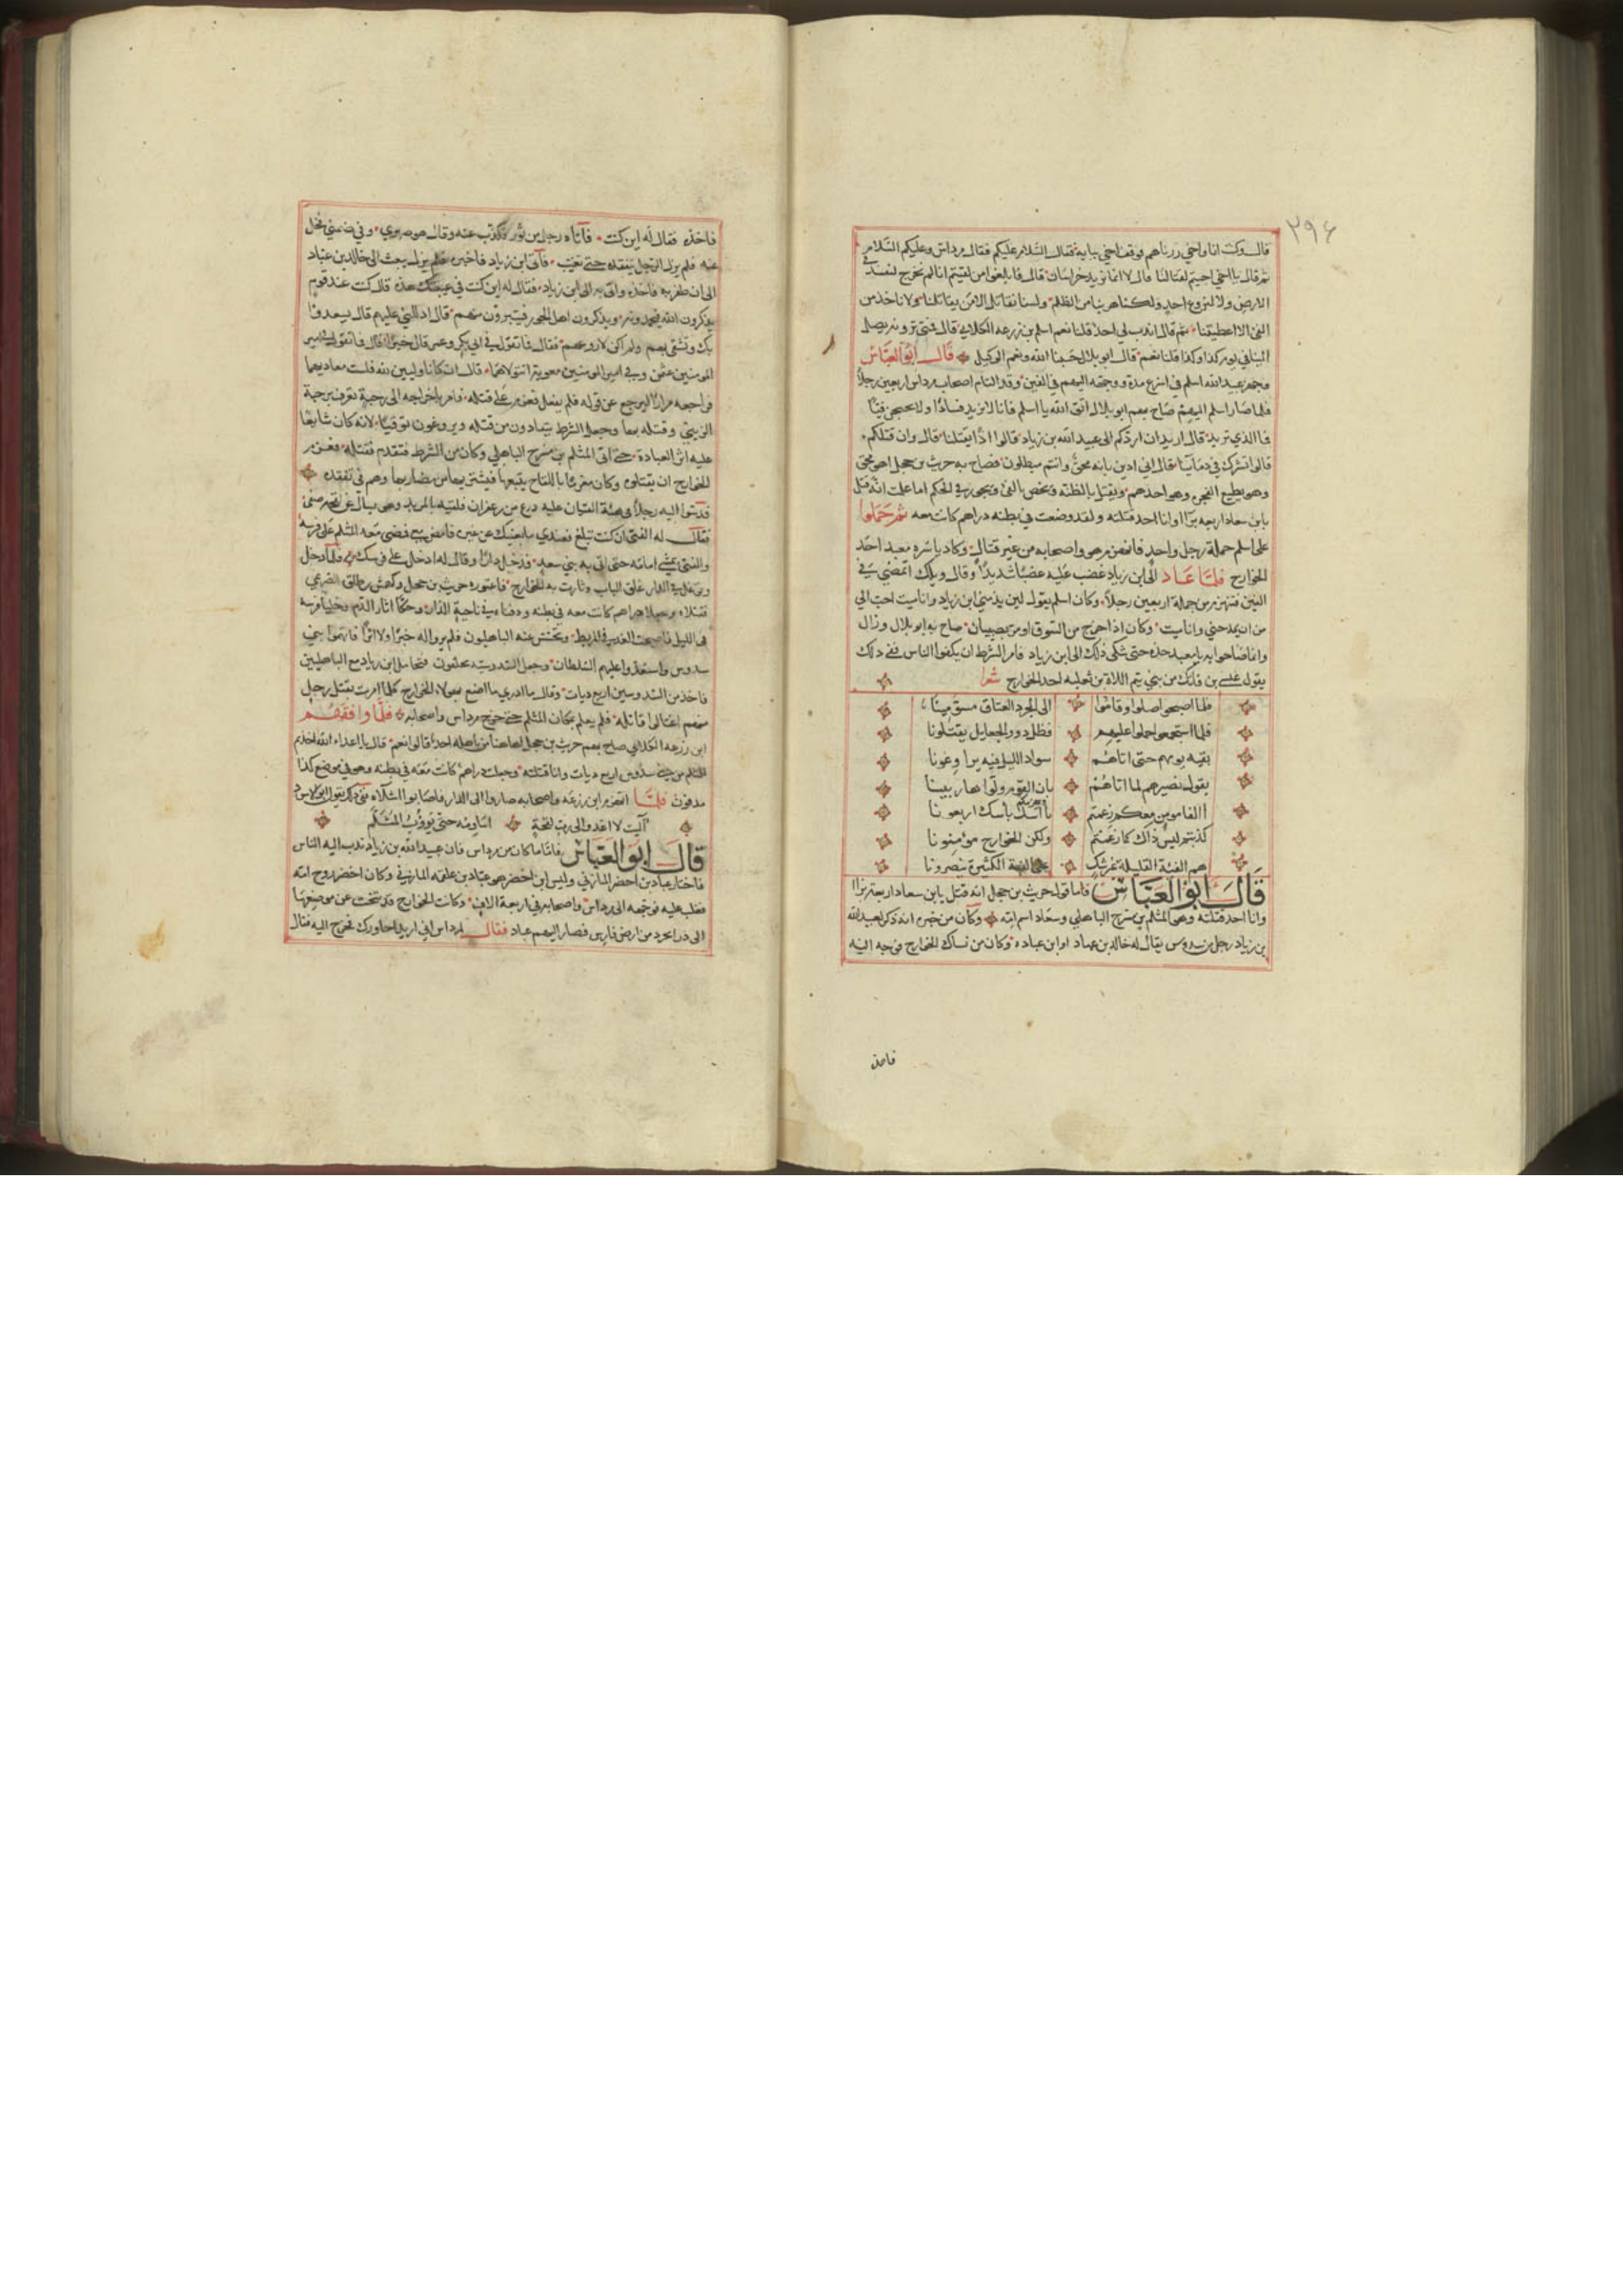 ٢٩٤
قال وكنت انا واخي زرناهم فوقف اخي ببابه فقال السلام عليكم فقال مرداس وعليكم السلام
ثم قال يا اخي اجيتم لقتالنا قال لا انما نريد خراسان قال فابلغوا من لقيتم انا لم نخرج لنفسد في
الارض ولا لنروع احد ولكنا هربنا من الظلم ولسنا نقاتل الا من يقاتلنا ولا ناخذ من
الفئ الا اعطيتنا ثم قال اندب لي احد قلنا نعم اسلم بن زرعه الكلابي قال فمتى ترونه يصل
الينا في يوم كذا وكذا قلنا نعم قال ابو بلال حسبنا الله ونعم الوكيل قال ابو العباس
وجهز عبيد الله اسلم في اسرع مدة ووجهه اليهم في الفين وقد التام اصحاب مرداس اربعين رجلا
فلما صار اسلم اليهم صاح بهم ابو بلال اتق الله يا اسلم فانا لا نريد فسادا ولا نحتجن فيئا
فما الذي تريد قال اريد ان اردكم الى عبيد الله بن زياد قالوا اذا يقتلنا قال وان قتلكم
قالوا تشرك في دمائنا قال اني ادين بانه محق وانتم مبطلون فصاح به حريث بن حجل اهو محق
وهو يطيع الفجرة وهو احدهم ويقتل بالظنه ويخص بالفئ ويجور في الحكم اما علمت انه قتل
بابن سعاد اربعه برآا وانا احد قتلته ولقد وضعت في بطنه دراهم كانت معه ثم حملوا
على اسلم حملة رجل واحد فانهزم هو واصحابه من غير قتال وكاد ياسره معبد احد
الخوارج فلما عاد الى ابن زياد غضب عليه غضبا شديدا وقال ويلك اتمضي في
الفين فتنهزم من جملة اربعين رجلا وكان اسلم يقول لين يذمني ابن زياد وانا ميت احب الي
من ان يمدحني وانا ميت وكان اذا خرج من السوق او مر بصبيان صاح به ابو بلال وزال
وانما صاحوا به يا معبد خذه حتى شكى ذلك الى ابن زياد فامر الشرط ان يكفوا الناس ففي ذلك
يقول عيسى بن فاتك من بني تيم اللاة بن ثعلبه احد الخوارج شعرا
فلما اصبحوا صلوا وقاموا الى الجرد العتاق مسومينا
فلما استجمعوا حملوا عليهم فظل ذوو الجعايل يقتلونا
بقيه يومهم حتى اتاهم سواد الليل فيه يراوغونا
يقول بصيرهم لما اتاهم بان القوم ولوا هاربينا
االفا مومن معكم زعمتم باسك اربعونا
كذبتم ليس ذاك كما زعمتم ولكن الخوارج مؤمنونا
هم الفئة القليلة غير شك على الفئة الكثيرة ينصرونا
قال ابو العباس فاما قول حريث بن حجل انه قتل بابن سعاد اربعة برآا
وانا احد قتلته وهو المثلم بن مسرح الباهلي وسعاد اسم ابنه وكان من خبره انه ذكر لعبيد الله
بن زياد رجل من سدوس يقال له خالد بن عباد او ابن عباده وكان من نساك الخوارج فوجه اليه
فاخذه
فاخذه فقال له اين كنت فاتاه رجل من ثور فكذب عنه وقال هو صهري وفي ضمني فخلى
عنه فلم يزل الرجل يتفقده حتى تغيب فاتى ابن زياد فاخبره فلم يزل يبعث الى خالد بن عباد
الى ان ظفر به فاخذه واتى به الى ابن زياد فقال له اين كنت في غيبتك هذه قال كنت عند قوم
يذكرون الله ويذكرون اهل الجور فيتبرؤن منهم قال ادللني عليهم قال يسعدوا
بك وتشقى بهم ولم اكن لاروعهم فقال فما تقول في ابي بكر وعمر قال خيرا قال فما تقول في امير
المومنين عثمن وفي امير المومنين معوية اتتولاهما قال ان كانا وليين لله فلست معاديهما
فراجعه مرارا ليرجع عن قوله فلم يفعل فعزم على قتله فامر باخراجه الى رحبة تعرف برحبة
الزينبي وقتله بها وجعل الشرط يتفادون من قتله ويروغون توقيا لانه كان شاسفا
عليه اثر العبادة حتى اتى المثلم بن مسرح الباهلي وكان من الشرط فتقدم فقتله فعزم
الخوارج ان يقتلوه وكان مغرما باللقاح يتتبعها فيشتريها من مضاربها وهم في تفقده
فدسوا اليه رجلا في هيئة الفتيان عليه درع من زعفران فلقيه بالمربد وهو يسال عن لقحه صفي
فقال له الفتى ان كنت تبلغ فعندي ما يغنيك عن غيره فامض معي فمضى معه المثلم على فرسه
والفتى يمشي امامه حتى اتى به بني سعد فدخل دارا وقال له ادخل على فرسك فلما دخل
وتوغل في الدار غلق الباب وثارت به الخوارج فاعتوره حريث بن حجل وكهمس بن طلق الضريمي
فقتلاه وجعلا دراهم كانت معه في بطنه ودفناه في ناحية الدار وحكا اثار الدم وخليا فرسه
في الليل فاصبحت الغد في المربط وتجسس عنه الباهليون فلم يروا له خبرا ولا اثرا فاتهموا بني
سدوس واستعدوا عليهم السلطان وجعل السدوسيه يحلفون فتحامل ابن زياد مع الباهليين
فاخذ من السدوسيين اربع ديات وقال ما ادري ما اصنع بهولاء الخوارج كلما امرت بقتل رجل
منهم اغتالوا قاتله فلم يعلم بمكان المثلم حتى خرج مرداس واصحابه فلما واقفهم
ابن زرعه الكلابي صاح بهم حريث بن حجل اهاهنا من باهله احد قالوا نعم قال يا اعداء الله اخذتم
للمثلم من بني سدوس اربع ديات وانا قتلته وجعلت دراهم كانت معه في بطنه وهو في موضع كذا
مدفون فلما انهزم ابن زرعه واصحابه صاروا الى الدار فاصابوا اشلاءه ففي ذلك يقول ابو الاسود
آليت لا اغدو الى رب لقحة اساومه حتى يؤوب المثلم
قال ابو العباس فاما ما كان من مرداس فان عبيد الله بن زياد ندب اليه الناس
فاختار عباد بن اخضر المازني وليس ابن اخضر هو عباد بن علقمه المازني وكان اخضر زوج امه
فغلب عليه فوجهه الى مرداس واصحابه في اربعة الاف وكانت الخوارج قد تنحت عن موضعها
الى درابجرد من ارض فارس فصار اليهم عباد فقال لمرداس اني اريد احاورك فخرج اليه فقال